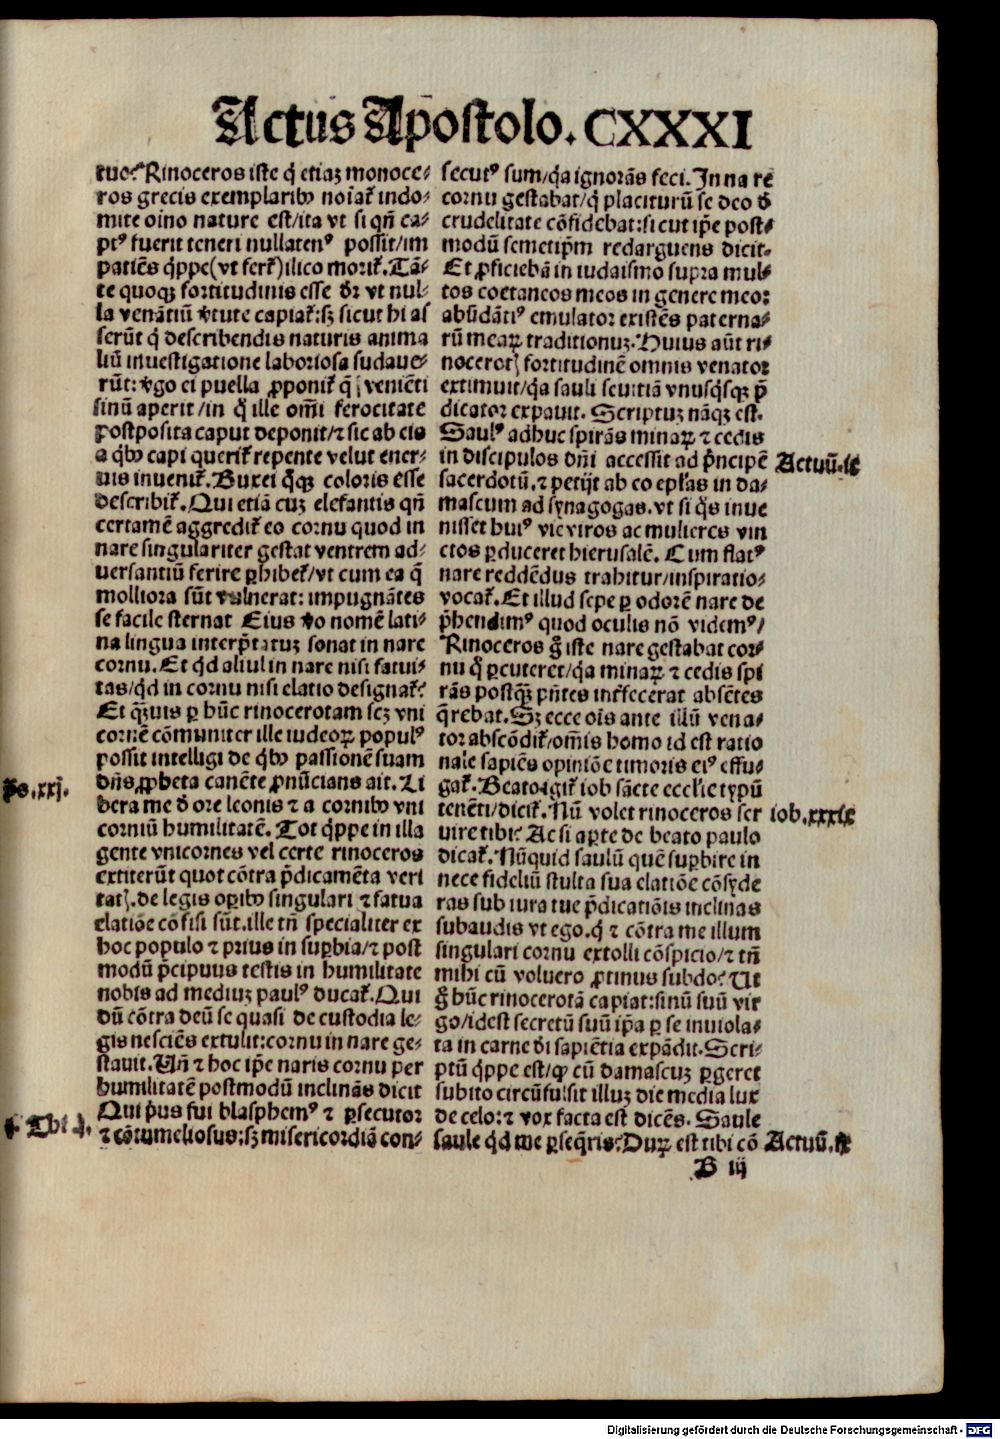 Actus Apostolo. CXXXI
tuo? Rinoceros iste q̃ etiaz monoce⸗
ros grecis exemplaribꝰ noīat᷑ indo⸗
mite oīno nature est/ita vt si qñ ca⸗
ptꝰ fuerit teneri nullatenꝰ possit/im
patiēs q̇ppe(vt fert᷑)ilico morit᷑. Tā⸗
te quoqꝫ fortitudinis esse dr̃ vt nul⸗
la venātiū v̓tute capiat᷑: sꝫ sicut hi as
serūt q̇ describendis naturis anima
liū inuestigatione laboriosa sudaue⸗
rūt: v̓go ei puella ꝓponit᷑ q̃ veniēti
sinū aperit/in q̊ ille om̄i ferocitate
postposita caput deponit/⁊ sic ab eis
a qͥbꝰ capi querit᷑ repente velut ener⸗
uis inuenit᷑. Buxei q̊qꝫ coloris esse
describit᷑. Qui etiā cuꝫ elefantis qñ
certamē aggredit᷑ eo cornu quod in
nare singulariter gestat ventrem ad⸗
uersantiū ferire ꝑhibet᷑/vt cum ea q̃
molliora sūt vulnerat: impugnātes
se facile sternat Eius v̓o nomē lati⸗
na lingua interp̄tatuꝫ sonat in nare
cornu. Et qͥd aliud in nare nisi fatui⸗
tas/qͥd in cornu nisi elatio designat᷑?
Et q̄ꝫuis ꝑ hūc rinocerotam scꝫ vni
cornē cōmuniter ille iudeoꝝ populꝰ
possit intelligi de qͥbꝰ passionē suam
dñs ꝓpheta canēte ꝓnūcians ait. Li
Ps.xxj.
bera me d̓ ore leonis ⁊ a cornibꝰ vni
corniū humilitatē. Tot q̇ppe in illa
gente vnicornes vel certe rinoceros
extiterūt quot cōtra p̄dicamēta veri
tatꝭ. de legis oꝑibꝰ singulari ⁊ fatua
elatiōe cōfisi sūt. ille tñ specialiter ex
hoc populo ⁊ prius in suꝑbia/⁊ post
modū p̄cipuus testis in humilitate
nobis ad mediuꝫ paulꝰ ducat᷑. Qui
dū cōtra deū se quasi de custodia le⸗
gis nesciēs extulit: cornu in nare ge⸗
stauit. Vñ ⁊ hoc ip̄e naris cornu per
humilitatē postmodū inclinās dicit
Qui p̓us fui blasphemꝰ ⁊ ꝑsecutor
j. Thi. j.
⁊ cōtumeliosus: sꝫ misericordiā con⸗
secutꝰ sum/qͥa ignorās feci. In na re
cornu gestabat/q̇ placiturū se deo d̓
crudelitate cōfidebat: sicut ip̄e post⸗
modū semetip̄m redarguens dicit.
Et ꝓficiebā in iudaismo supra mul⸗
tos coetaneos meos in genere meo:
abūdātiꝰ emulator existēs paterna⸗
rū meaꝝ traditionuꝫ. Huius aūt ri⸗
nocerotꝭ fortitudinē omnis venator
extimuit/qͥa sauli seuitiā vnusqͥsqꝫ p̄
dicator expauit. Scriptuꝫ nāqꝫ est.
Saulꝰ adhuc spirās minaꝝ ⁊ cedis
in discipulos dñi accessit ad p̓ncipē
Actuū.ix
sacerdotū. ⁊ petijt ab eo epl̄as in da⸗
mascum ad synagogas. vt si qͥs inue
nisset huiꝰ vie viros ac mulieres vin
ctos ꝑduceret hierusalē. Cum flatꝰ
nare reddēdus trahitur/inspiratio⸗
vocat᷑. Et illud sepe ꝑ odorē nare de
p̄hendimꝰ quod oculis nō videmꝰ/
Rinoceros g̊ iste nare gestabat cor⸗
nu q̊ ꝑcuteret/qͥa minaꝝ ⁊ cedis spi
rās postq̄ꝫ p̄ntes int᷑fecerat absētes
q̄rebat. Sꝫ ecce oīs ante illū vena⸗
tor abscōdit᷑/om̄is homo id est ratio
nale sapiēs opiniōe timoris eiꝰ effu⸗
gat᷑. Beato igit᷑ iob sācte ecclie typū
tenēti/dicit᷑. Nū volet rinoceros ser
iob.xxxix
uire tibi? Ac si aꝑte de beato paulo
dicat᷑. Nūquid saulū quē suꝑbire in
nece fideliū stulta sua elatiōe cōsyde
ras sub iura tue p̄dicatiōis inclinas
subaudis vt ego. q̇ ⁊ cōtra me illum
singulari cornu extolli cōspicio/⁊ tñ
mihi cū voluero ꝓtinus subdo? Ut
g̊ hūc rinocerotā capiat: sinū suū vir
go/idest secretū suū ip̄a ꝑ se inuiola⸗
ta in carne d̓i sapiētia expādit. Scri⸗
ptū q̇ppe est/ꝙ cū damascuꝫ ꝑgeret
subito circūfulsit illuꝫ die media lux
de celo: ⁊ vox facta est dicēs. Saule
saule qͥd me ꝑseq̄ris? Duꝝ est tibi cō
Actuū.ix
B iij
Digitalisierung gefördert durch die Deutsche Forschungsgemeinschaft - DFG